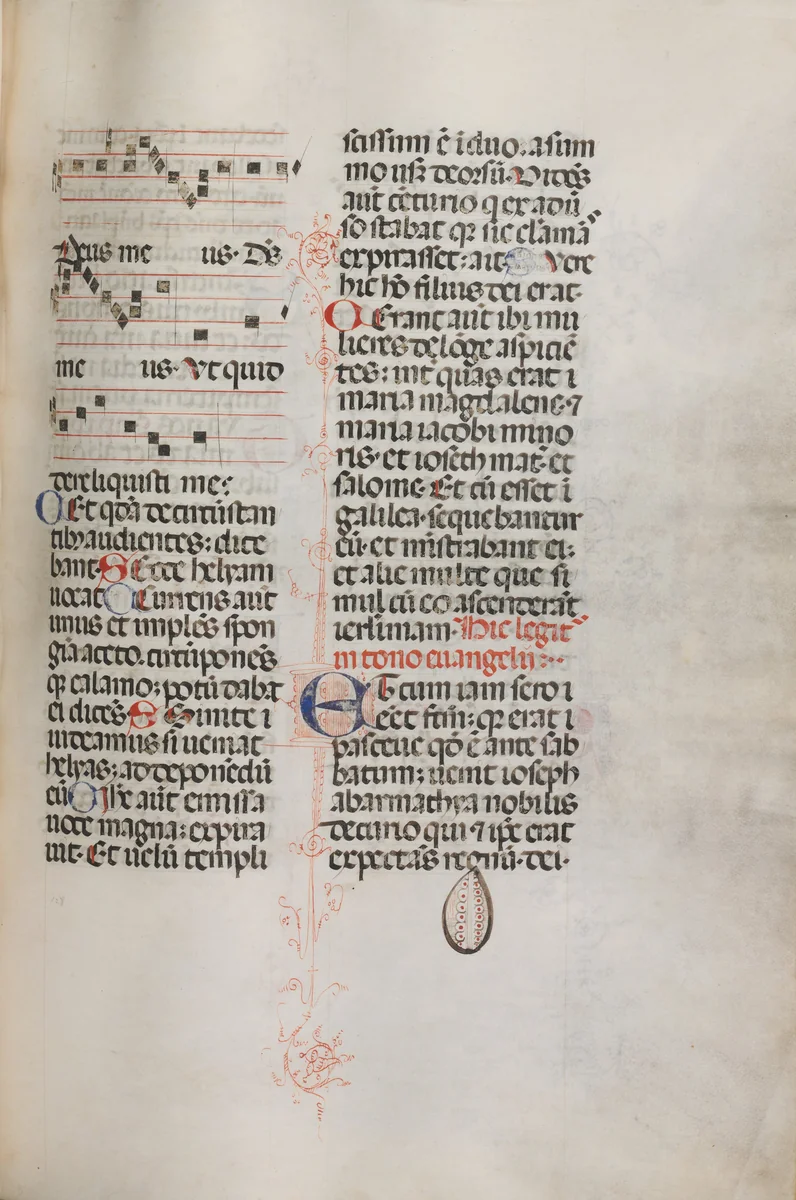 Deus me us. Ds
me us. Vt quid
dereliquisti me?
C Et qdā de circūstan
tibꝰ audientes: dice
bant. S Ecce helyam
uocat. C Currens aut
unus et implēs spon
giā aceto. circūponēs
qȝ calamo; potū dabat
ei dicēs. S Sinite i
uideamus si ueniat
helyas; ad deponēdū
eū. C Ihc aūt emissa
uoce magna: expira
uit. Et uelū templi
scissum ē i duo. a sum
mo usqȝ deorsū. Vidēs
aūt cēturio q ex adū
so stabat qȝ sic clamā
expirasset: ait. Vere
hic hō filius dei erat.
C Erant aūt ibi mu
lieres de lōge aspiciē
tes: int quas erat i
maria magdalene. ⁊
maria iacobi mino
ris. et ioseth mat. et
salome. Et cū esset i
galilea. sequebantur
eū. et mīstrabant ei.
et alie multe que si
mul cū eo ascenderāt
ierlimam. Hic legit
in tono euangelii:
Et cum iam sero i
eēt ftm; qȝ erat i
pasceue qd ē ante sab
batum; uenit ioseph
ab arimathya nobilis
decurio qui ⁊ ipe erat
expectās regnū. dei.